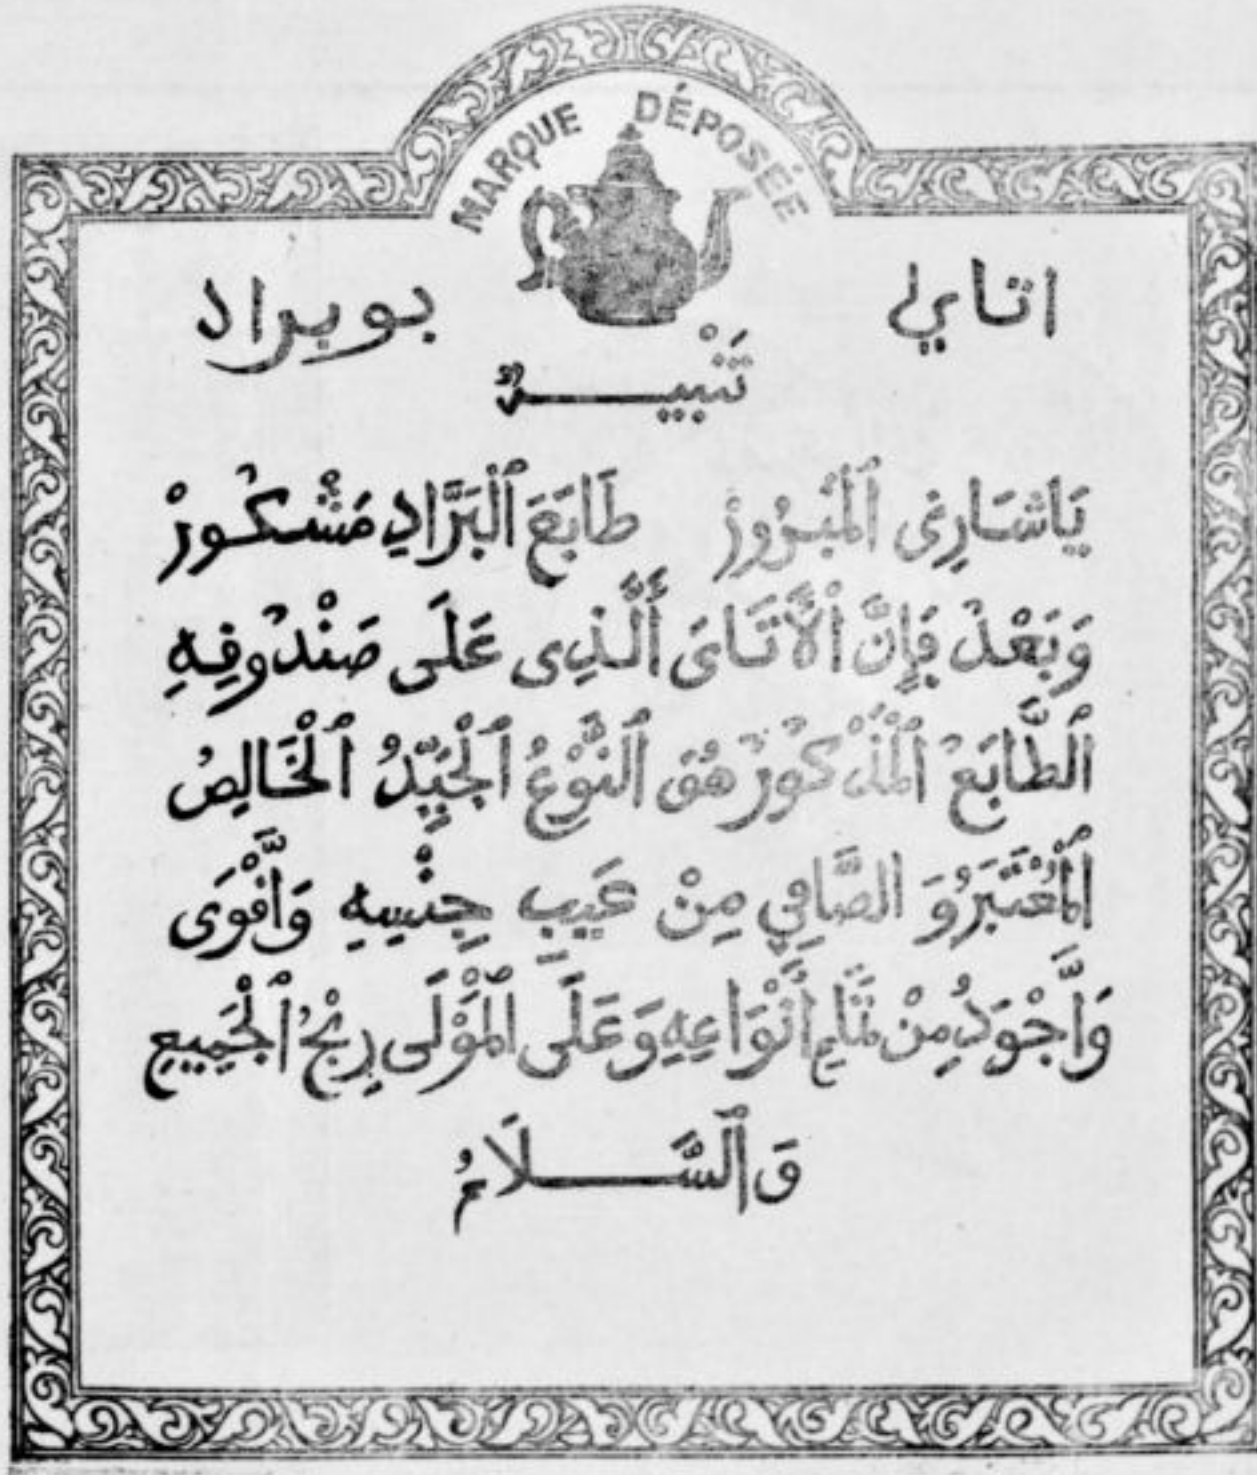 MARQUE DÉPOSÉE
اتاي بوبراد
تَنْبِيهٌ
يَاشَارِي ٱلْمَبْرُورْ طَابَعَ ٱلْبَرَّادِ مَشْكُورْ
وَبَعْدُ فَإِنَّ ٱلْأَتَايَ ٱلَّذِى عَلَى صَنْدُوقِهِ
ٱلطَّابَعُ ٱلْمَذْكُورُ هُوَ ٱلنَّوْعُ ٱلْجَيِّدُ ٱلْخَالِصُ
ٱلْمُعْتَبَرُ وَ الصَّافِي مِنْ عَيْبِ جِنْسِهِ وَأَقْوَى
وَأَجْوَدُ مِنْ أَنْوَاعِهِ وَعَلَى ٱلْمَوْلَى رِبْحُ ٱلْجَمِيعِ
وَٱلسَّلَامُ